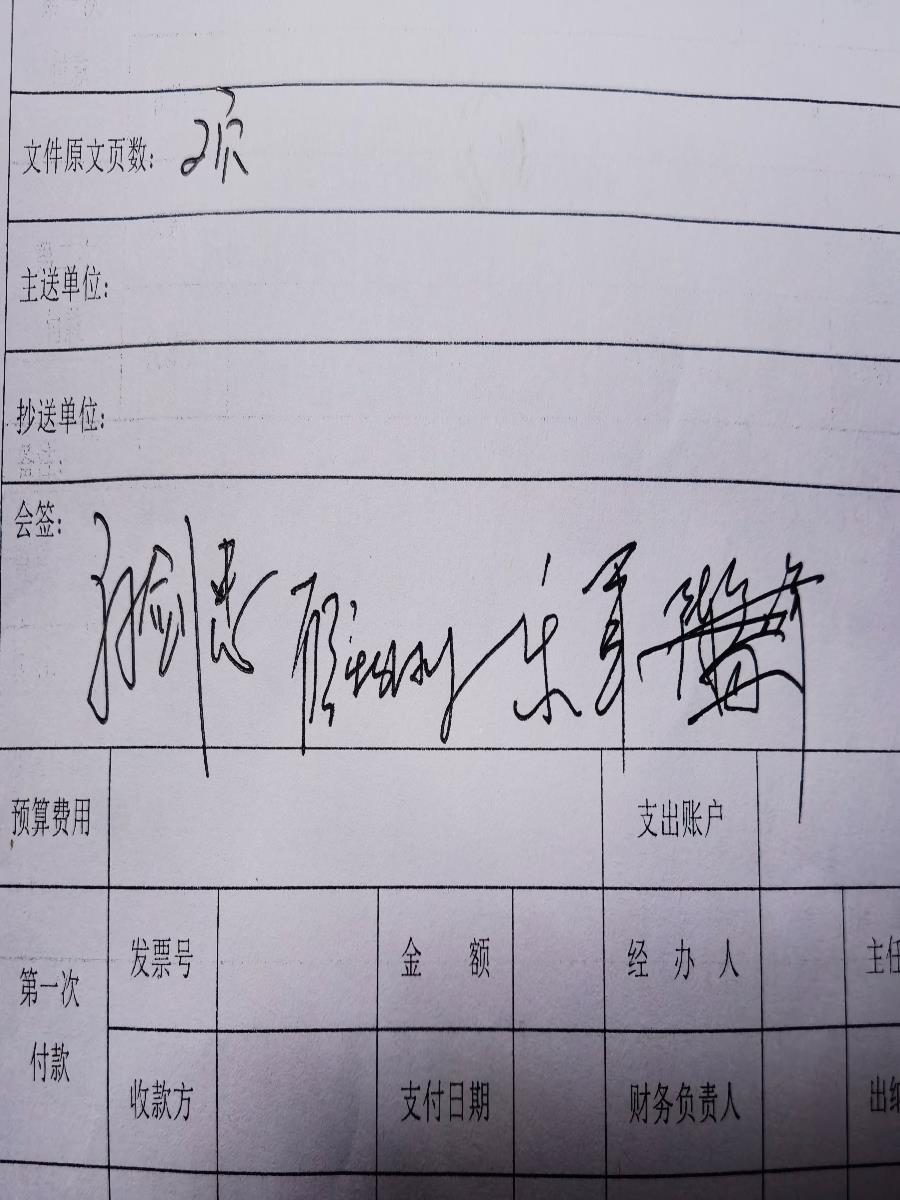 文件原文页数: 2页
主送单位:
抄送单位:
会签:
预算费用 支出账户
第一次付款 发票号 金 额 经 办 人 主任
收款方 支付日期 财务负责人 出纳